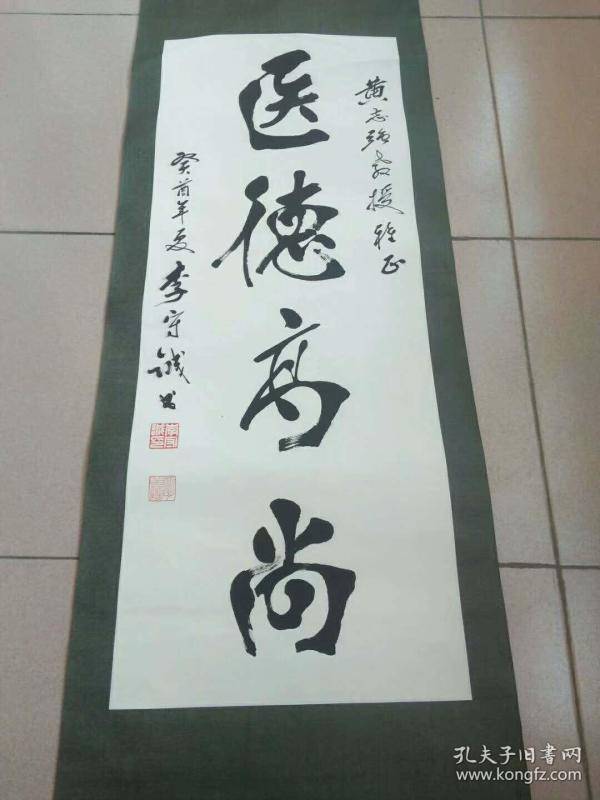 黄志强教授雅正
医德高尚
癸酉年夏
李守诚书
孔夫子旧书网
www.kongfz.com